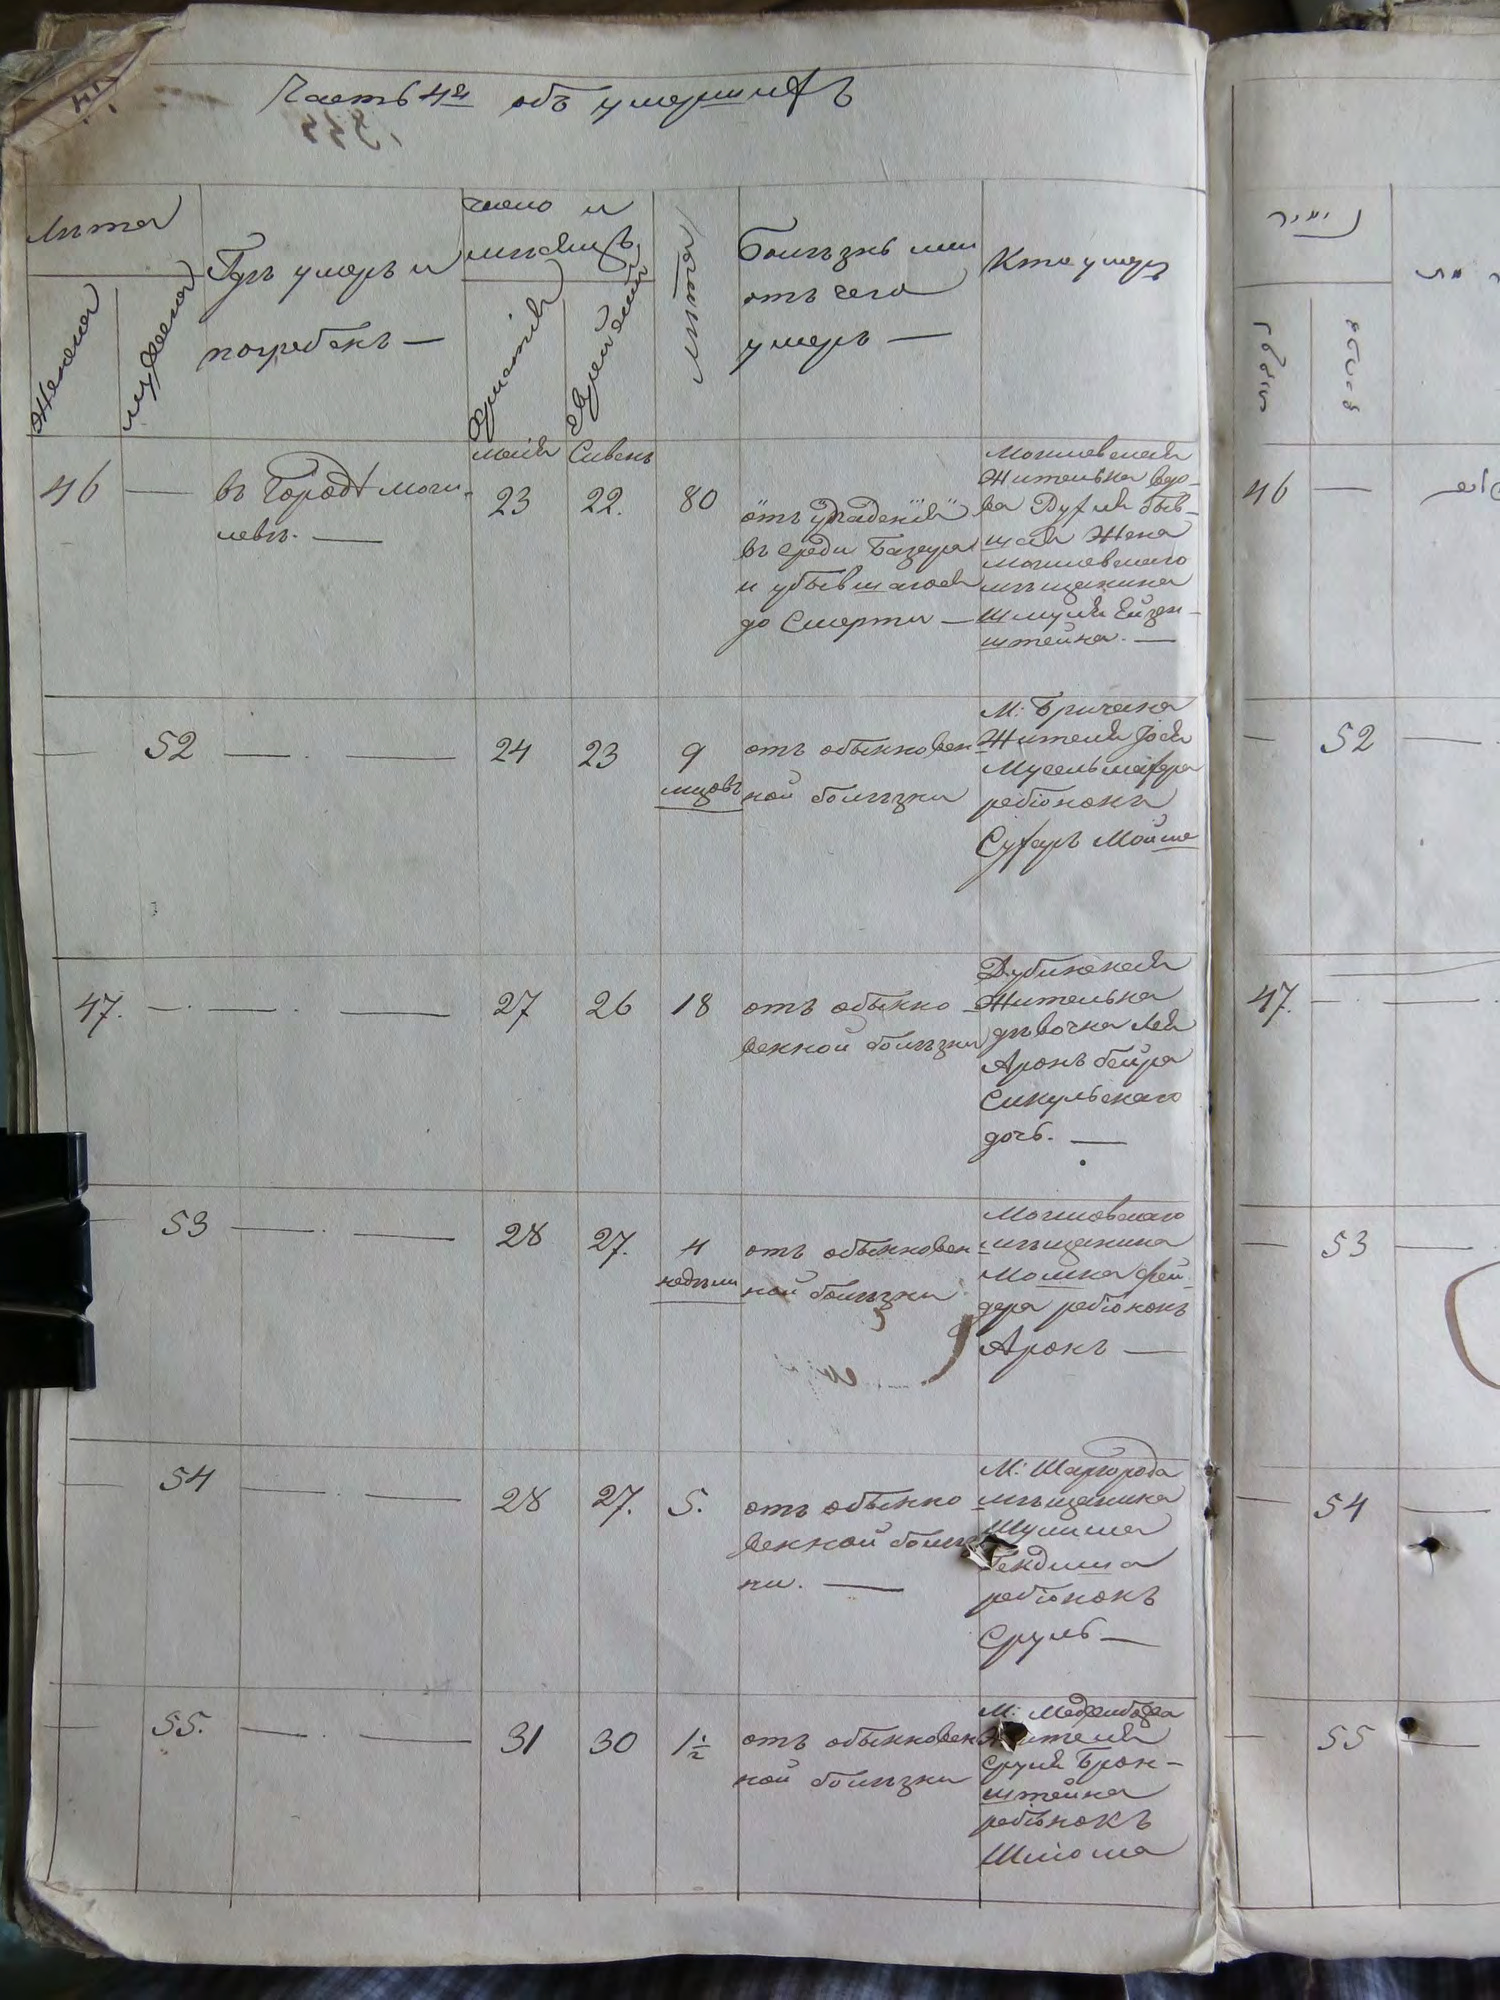 Часть 4я объ умершихъ
Лѣта
Женска
мужеска
Гдѣ умеръ и
погребенъ —
число и
мѣсяцъ
Христіа
Еврейскій
лѣта
Болѣзнь или
отъ чего
умеръ —
Кто умеръ
маія Сивенъ
46 — въ Городѣ Моги-
левѣ. —
23 22. 80
отъ упаденія
въ среди Базара
и убывшагося
до Смерти —
Могилевская
Жителька вдо-
ва Рухля быв-
шая Жена
могилевскаго
мѣщанина
Шмуля Ейзен-
штейна. —
— 52 — . — 24 23 9
мцовъ
отъ обыкновен
ной болѣзни
М: Бричана
Жителя Іося
ребіонокъ
Сухеръ Мойше
47. — . — — 27 26 18
отъ обыкно
венной болѣзни
Жителька
дѣвочка Лея
Аронъ бейра
Сикульскаго
дочь. —
— 53 — . — 28 27. 4
недѣли
отъ обыкновен
ной болѣзни
Могилевскаго
мѣщанина
Мошка Фей
дера ребіонокъ
Аронъ —
— 54 — . — 28 27. 5.
отъ обыкно
венной болѣз
ни. —
М: Шаргорода
мѣщанина
Шулима
Гендлиша
ребіонокъ
Сруль —
— 55. — . — 31 30 1½
отъ обыкновен
ной болѣзни
М: Меджибожа
Жителя
Сруля Брон-
штейна
ребіонокъ
Шліома
46 —
— 52 —
47. — . —
— 53 —
— 54 —
— 55